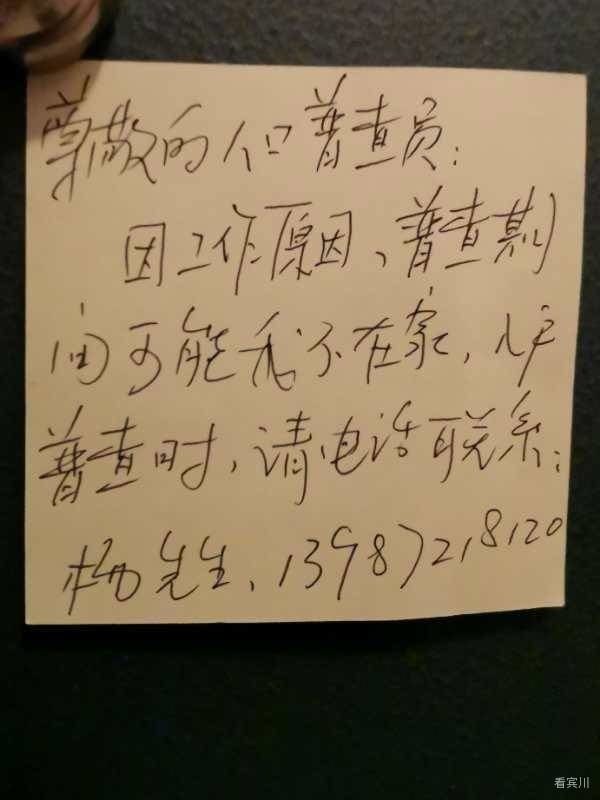 尊敬的人口普查员:
因工作原因、普查期
间可能我不在家,入户
普查时,请电话联系:
杨先生、13987218120
看宾川